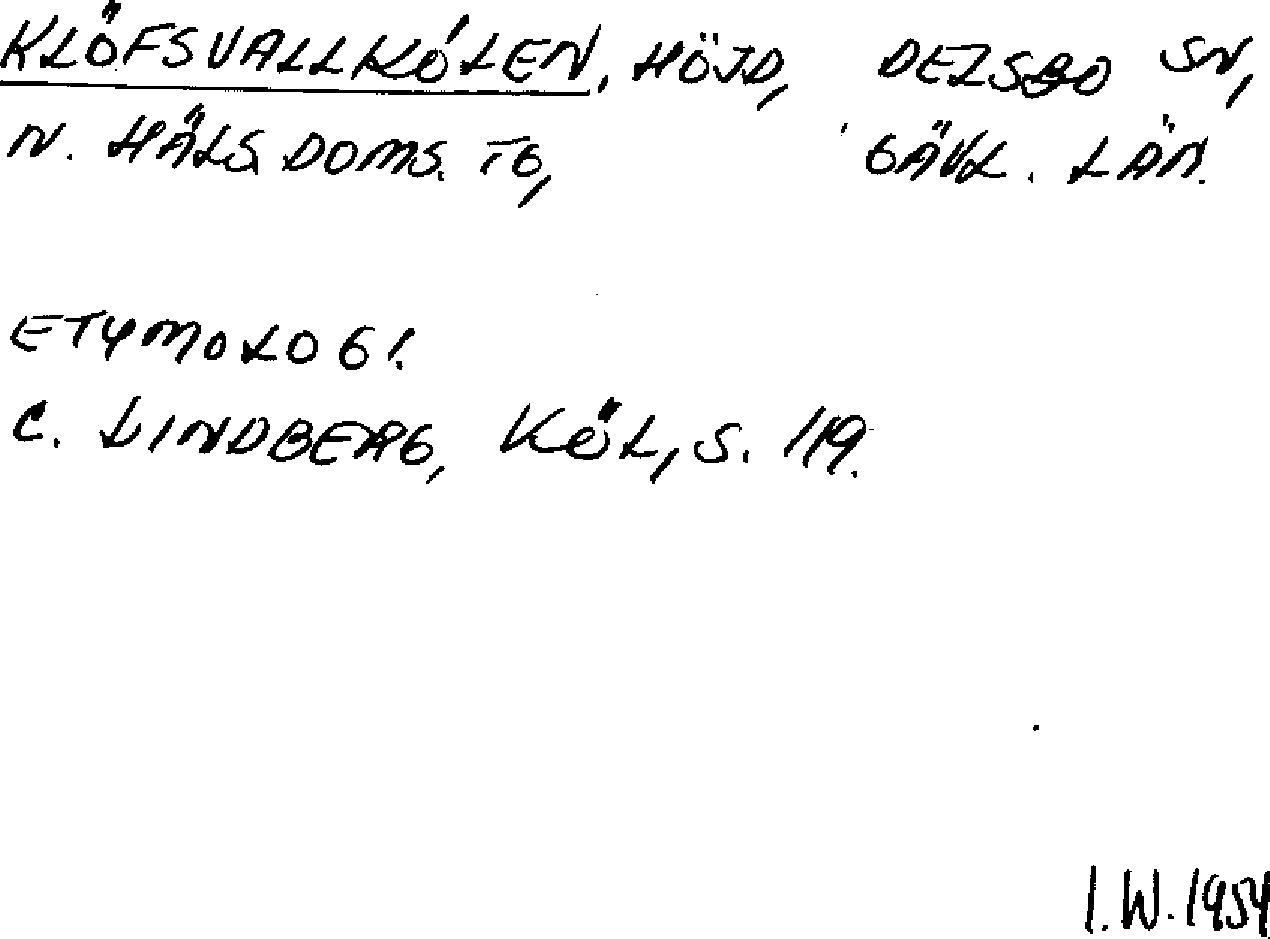 KLÖFSVALLKÖLEN, HÖJD, DELSBO SN,
N. HÄLS. DOMS. TG, GÄVL. LÄN.
ETYMOLOGI.
C. LINDBERG, KÖL, S. 119.
I.W. 1954